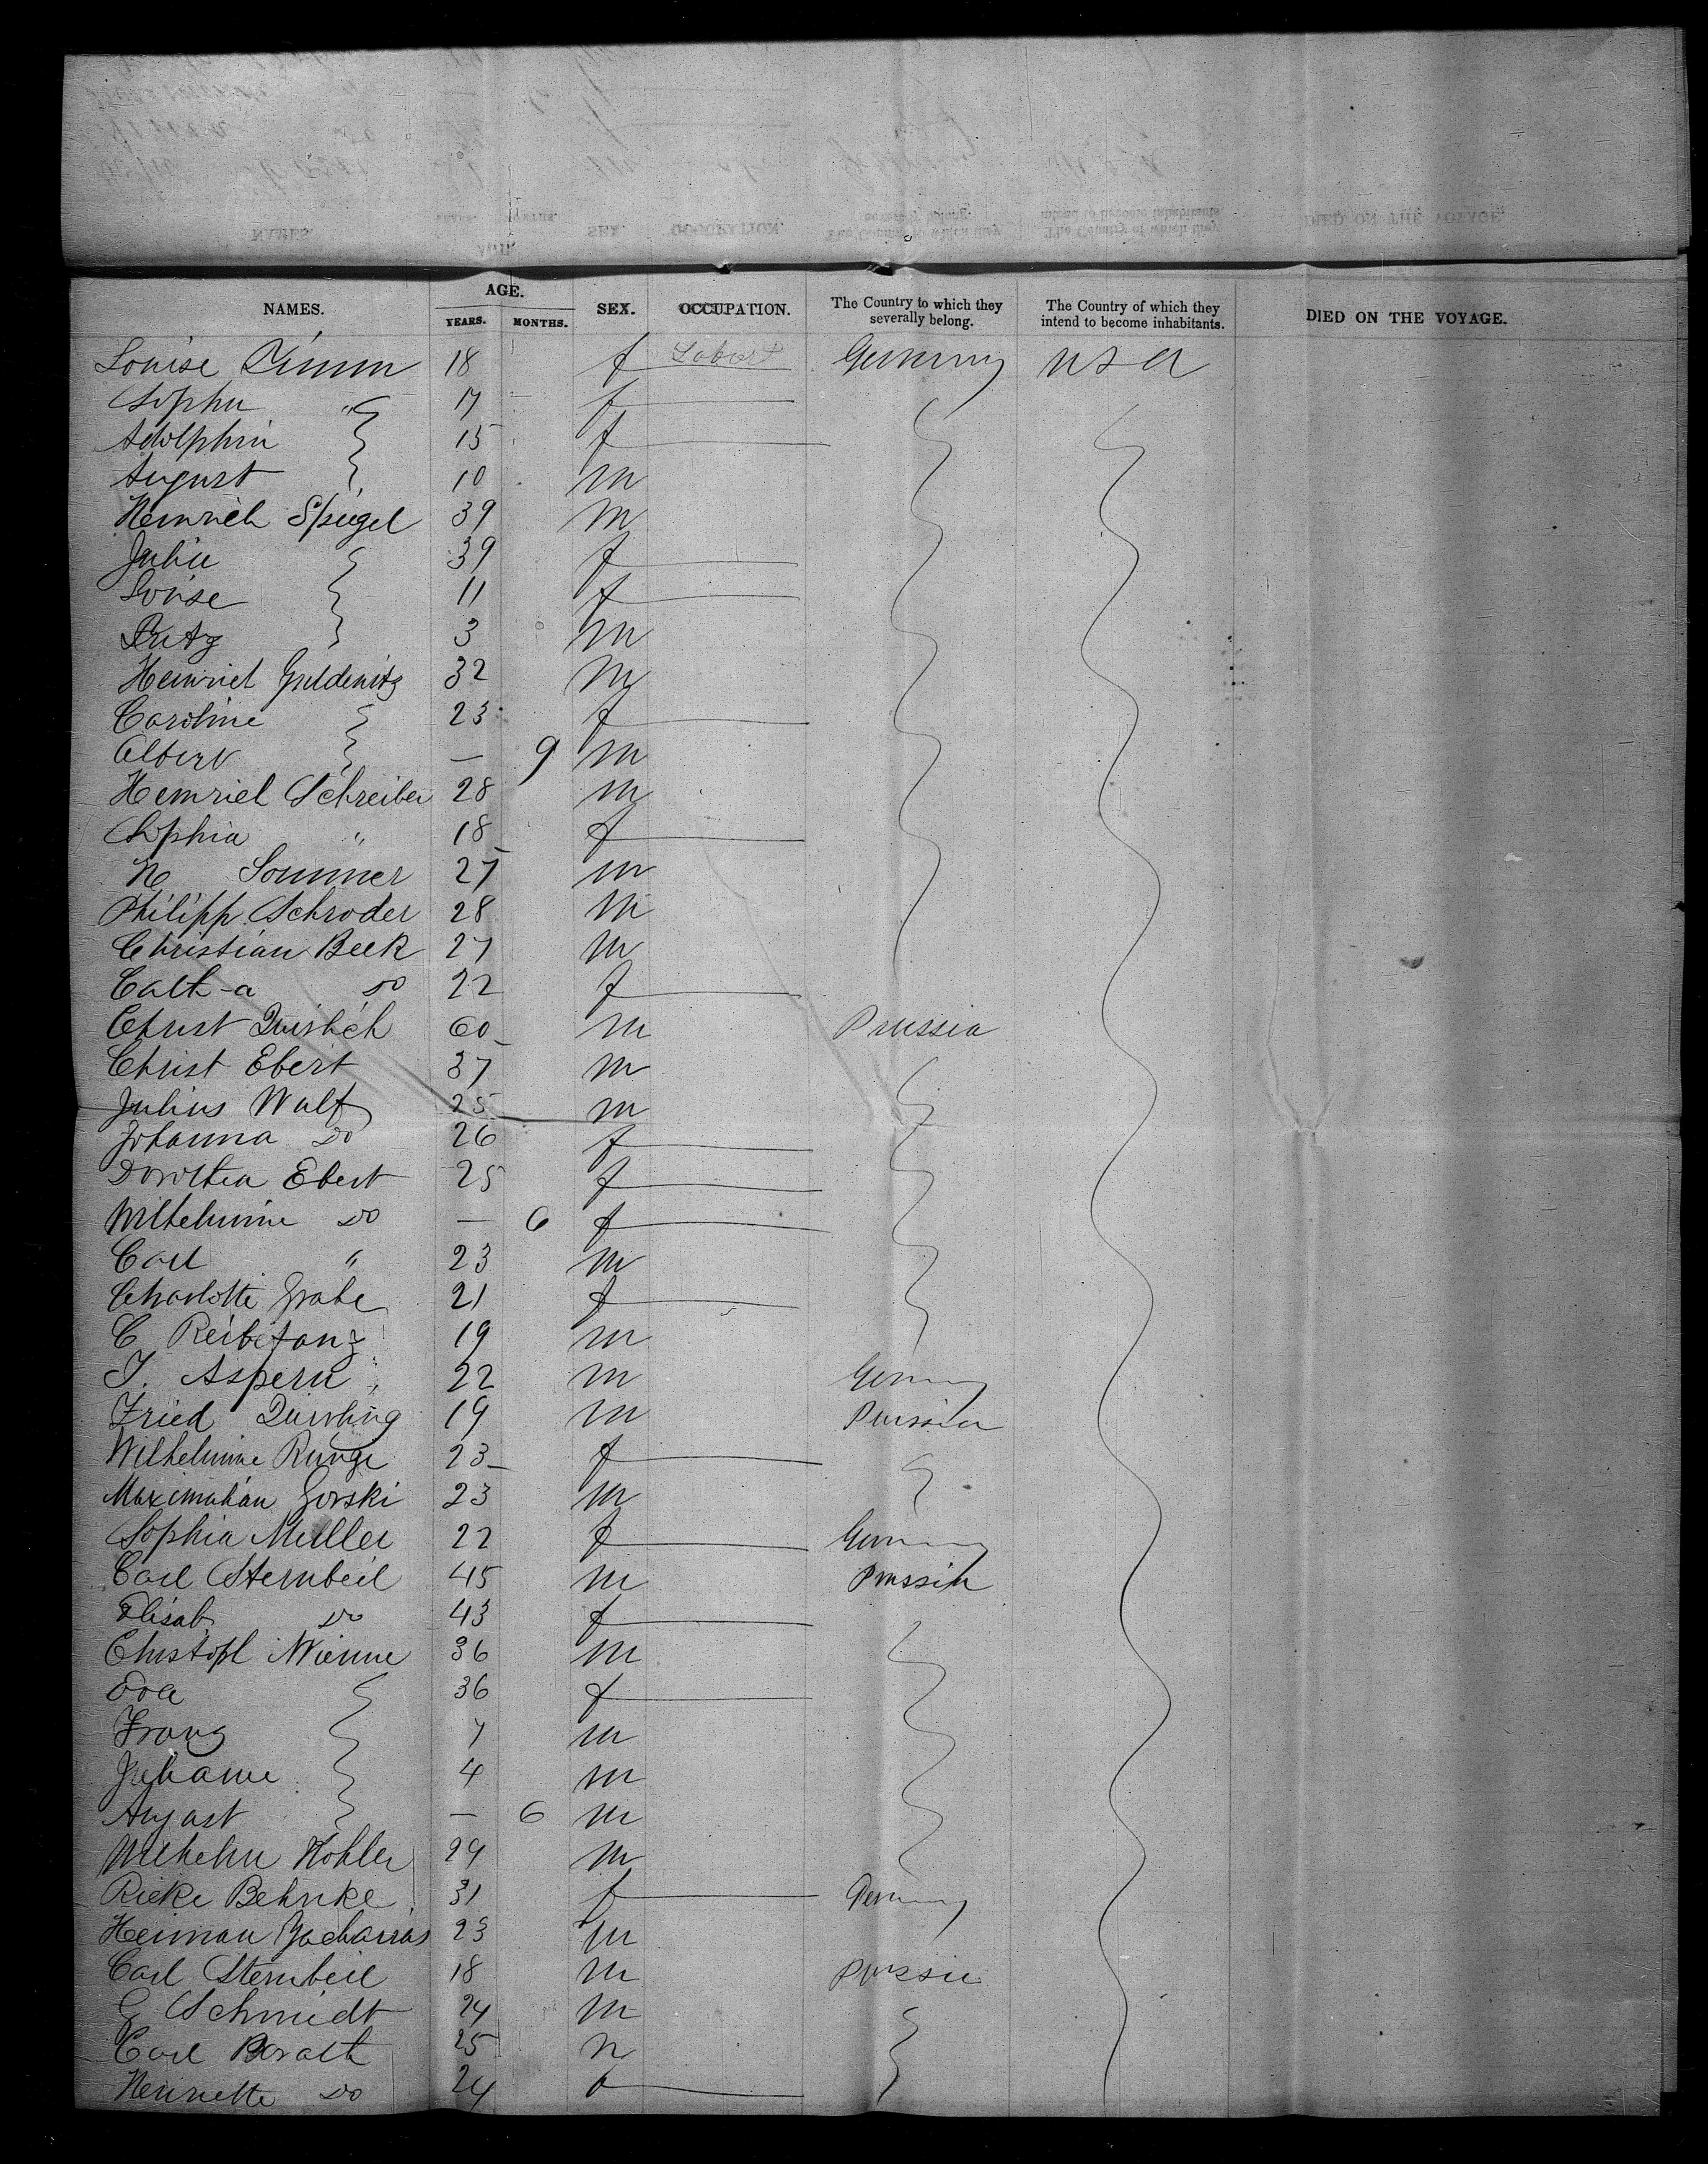 NAMES. AGE. YEARS. MONTHS. SEX. OCCUPATION. The Country to which they severally belong. The Country of which they intend to become inhabitants. DIED ON THE VOYAGE.
Louise Timm 18 f Germany USA
Sophie " 17 f
Adolphin 15 f
August 10 m
Heinrich Spiegel 39 m
Julie 39 f
Louise 11 f
Fritz 3 m
Heinrich 32 m
Caroline 23 f
Albert — 9 m
Heinrich Schreiber 28 m
Sophia " 18 f
H Sommer 27 m
Philipp Schroder 28 m
Christian Beek 27 m
Cath-a do 22 f
Christ 60 m Prussia
Christ Ebert 37 m
Julius Walf 25 m
Johanna Do 26 f
Dorothea Ebert 25 f
Wilhelmine Do — 6 f
Carl " 23 m
Charlotte Grabe 21 f
C Reibitanz 19 m
J. Aspern 22 m Germany
Fried Quirling 19 m Prussia
Wilhelmine Runge 23 f
Maximilian Gorski 23 m
Sophia Muller 22 f Germany
Carl Sternbeil 45 m Prussia
Elisab Do 43 f
Christoph Wienne 36 m
Eva 36 f
Franz 7 m
Juliane 4 m
August — 6 m
Wilhelm Kohler 24 m
Rieke Behnke 31 f Germany
Herman Zacharias 23 m
Carl Sternbeil 18 m Prussia
G Schmidt 24 m
Carl Borath 25 m
Henriette Do 24 f